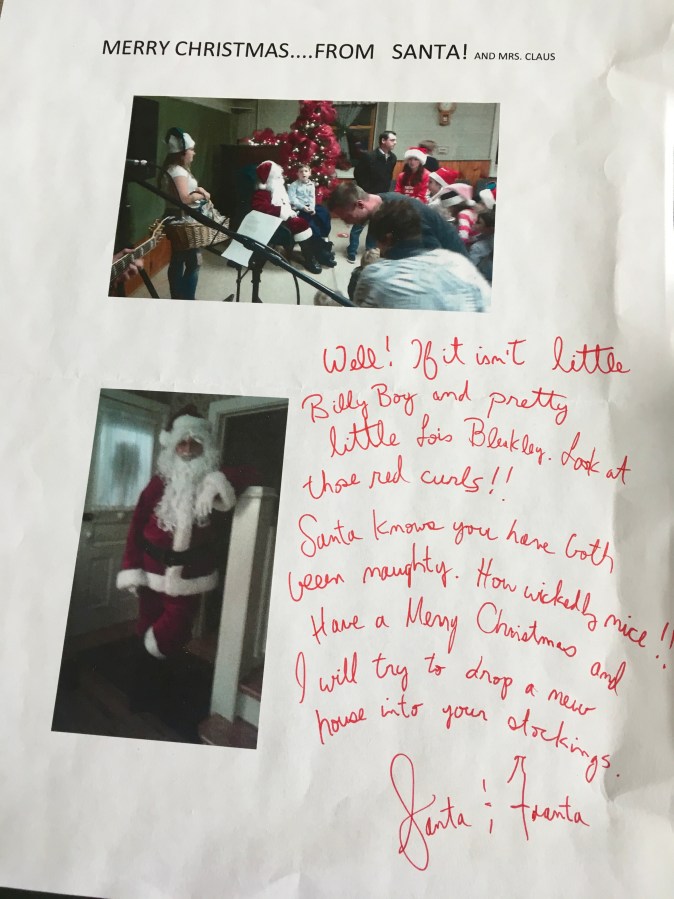 MERRY CHRISTMAS....FROM SANTA! AND MRS. CLAUS
Well! If it isn't little
Billy Boy and pretty
little Lois Bleakley. Look at
those red curls!!
Santa knows you have both
been naughty. How wickedly nice!!
Have a Merry Christmas and
I will try to drop a new
house into your stockings.
Santa &